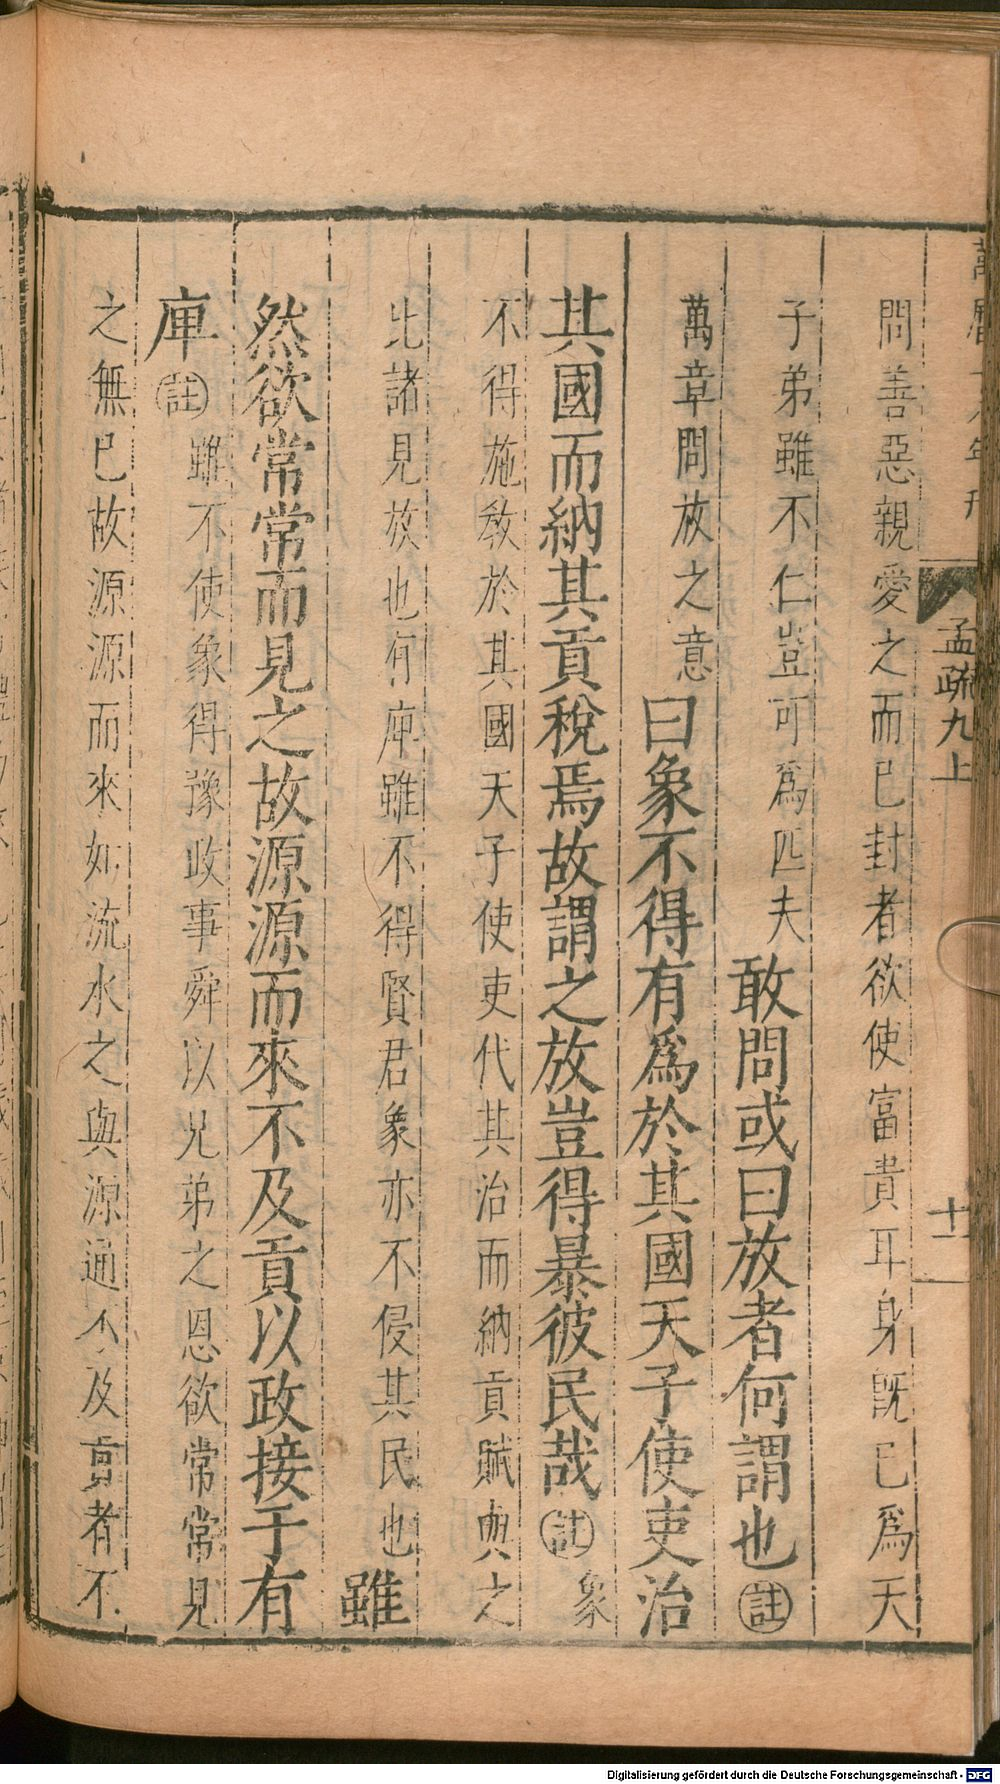 年刊
孟疏九上
十一
問善惡親愛之而已封者欲使富貴耳身既已爲天
子弟雖不仁豈可爲匹夫敢問或曰放者何謂也註
萬章問放之意曰象不得有爲於其國天子使吏治
其國而納其貢稅焉故謂之放豈得暴彼民哉註象
不得施敎於其國天子使吏代其治而納貢賦與之
比諸見放也有庳雖不得賢君象亦不侵其民也雖
然欲常常而見之故源源而來不及貢以政接于有
庳註雖不使象得豫政事舜以兄弟之恩欲常常見
之無已故源源而來如流水之與源通不及貢者不
Digitalisierung gefördert durch die Deutsche Forschungsgemeinschaft - DFG